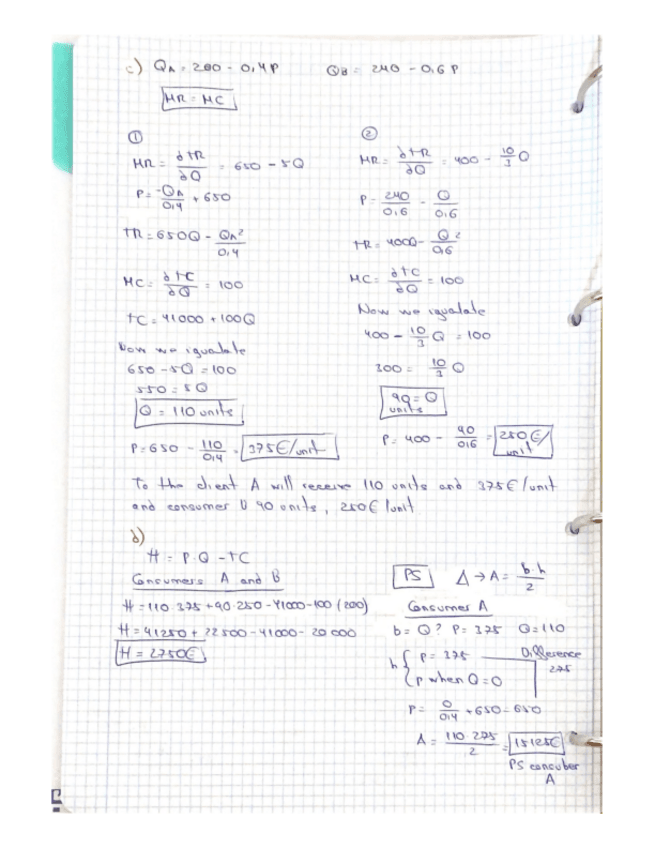 c) QA = 260 - 0,4P QB = 240 - 0,6 P
MR = MC
①
MR = ∂TR/∂Q = 650 - 5Q
P = -QA/0,4 + 650
TR = 650Q - QA²/0,4
MC = ∂TC/∂Q = 100
TC = 41000 + 100Q
Now we igualate
650 - 5Q = 100
550 = 5Q
Q = 110 units
P = 650 - 110/0,4 = 375€/unit
②
MR = ∂TR/∂Q = 400 - 10/3 Q
P = 240/0,6 - Q/0,6
TR = 400Q - Q²/0,6
MC = ∂TC/∂Q = 100
Now we igualate
400 - 10/3 Q = 100
300 = 10/3 Q
90 = Q units
P = 400 - 90/0,6 = 250€/unit
To the client A will receive 110 units and 375€/unit
and consumer B 90 units, 250€/unit
d)
π = P·Q - TC
Consumers A and B
π = 110·375 + 90·250 - 41000 - 100 (200)
π = 41250 + 22500 - 41000 - 20000
π = 2750€
PS △ → A = b·h/2
Consumer A
b = Q? P = 375 Q = 110
h { P = 375 Difference
P when Q = 0 275
P = 0/0,4 + 650 = 650
A = 110·275/2 = 15125€
PS consumer
A